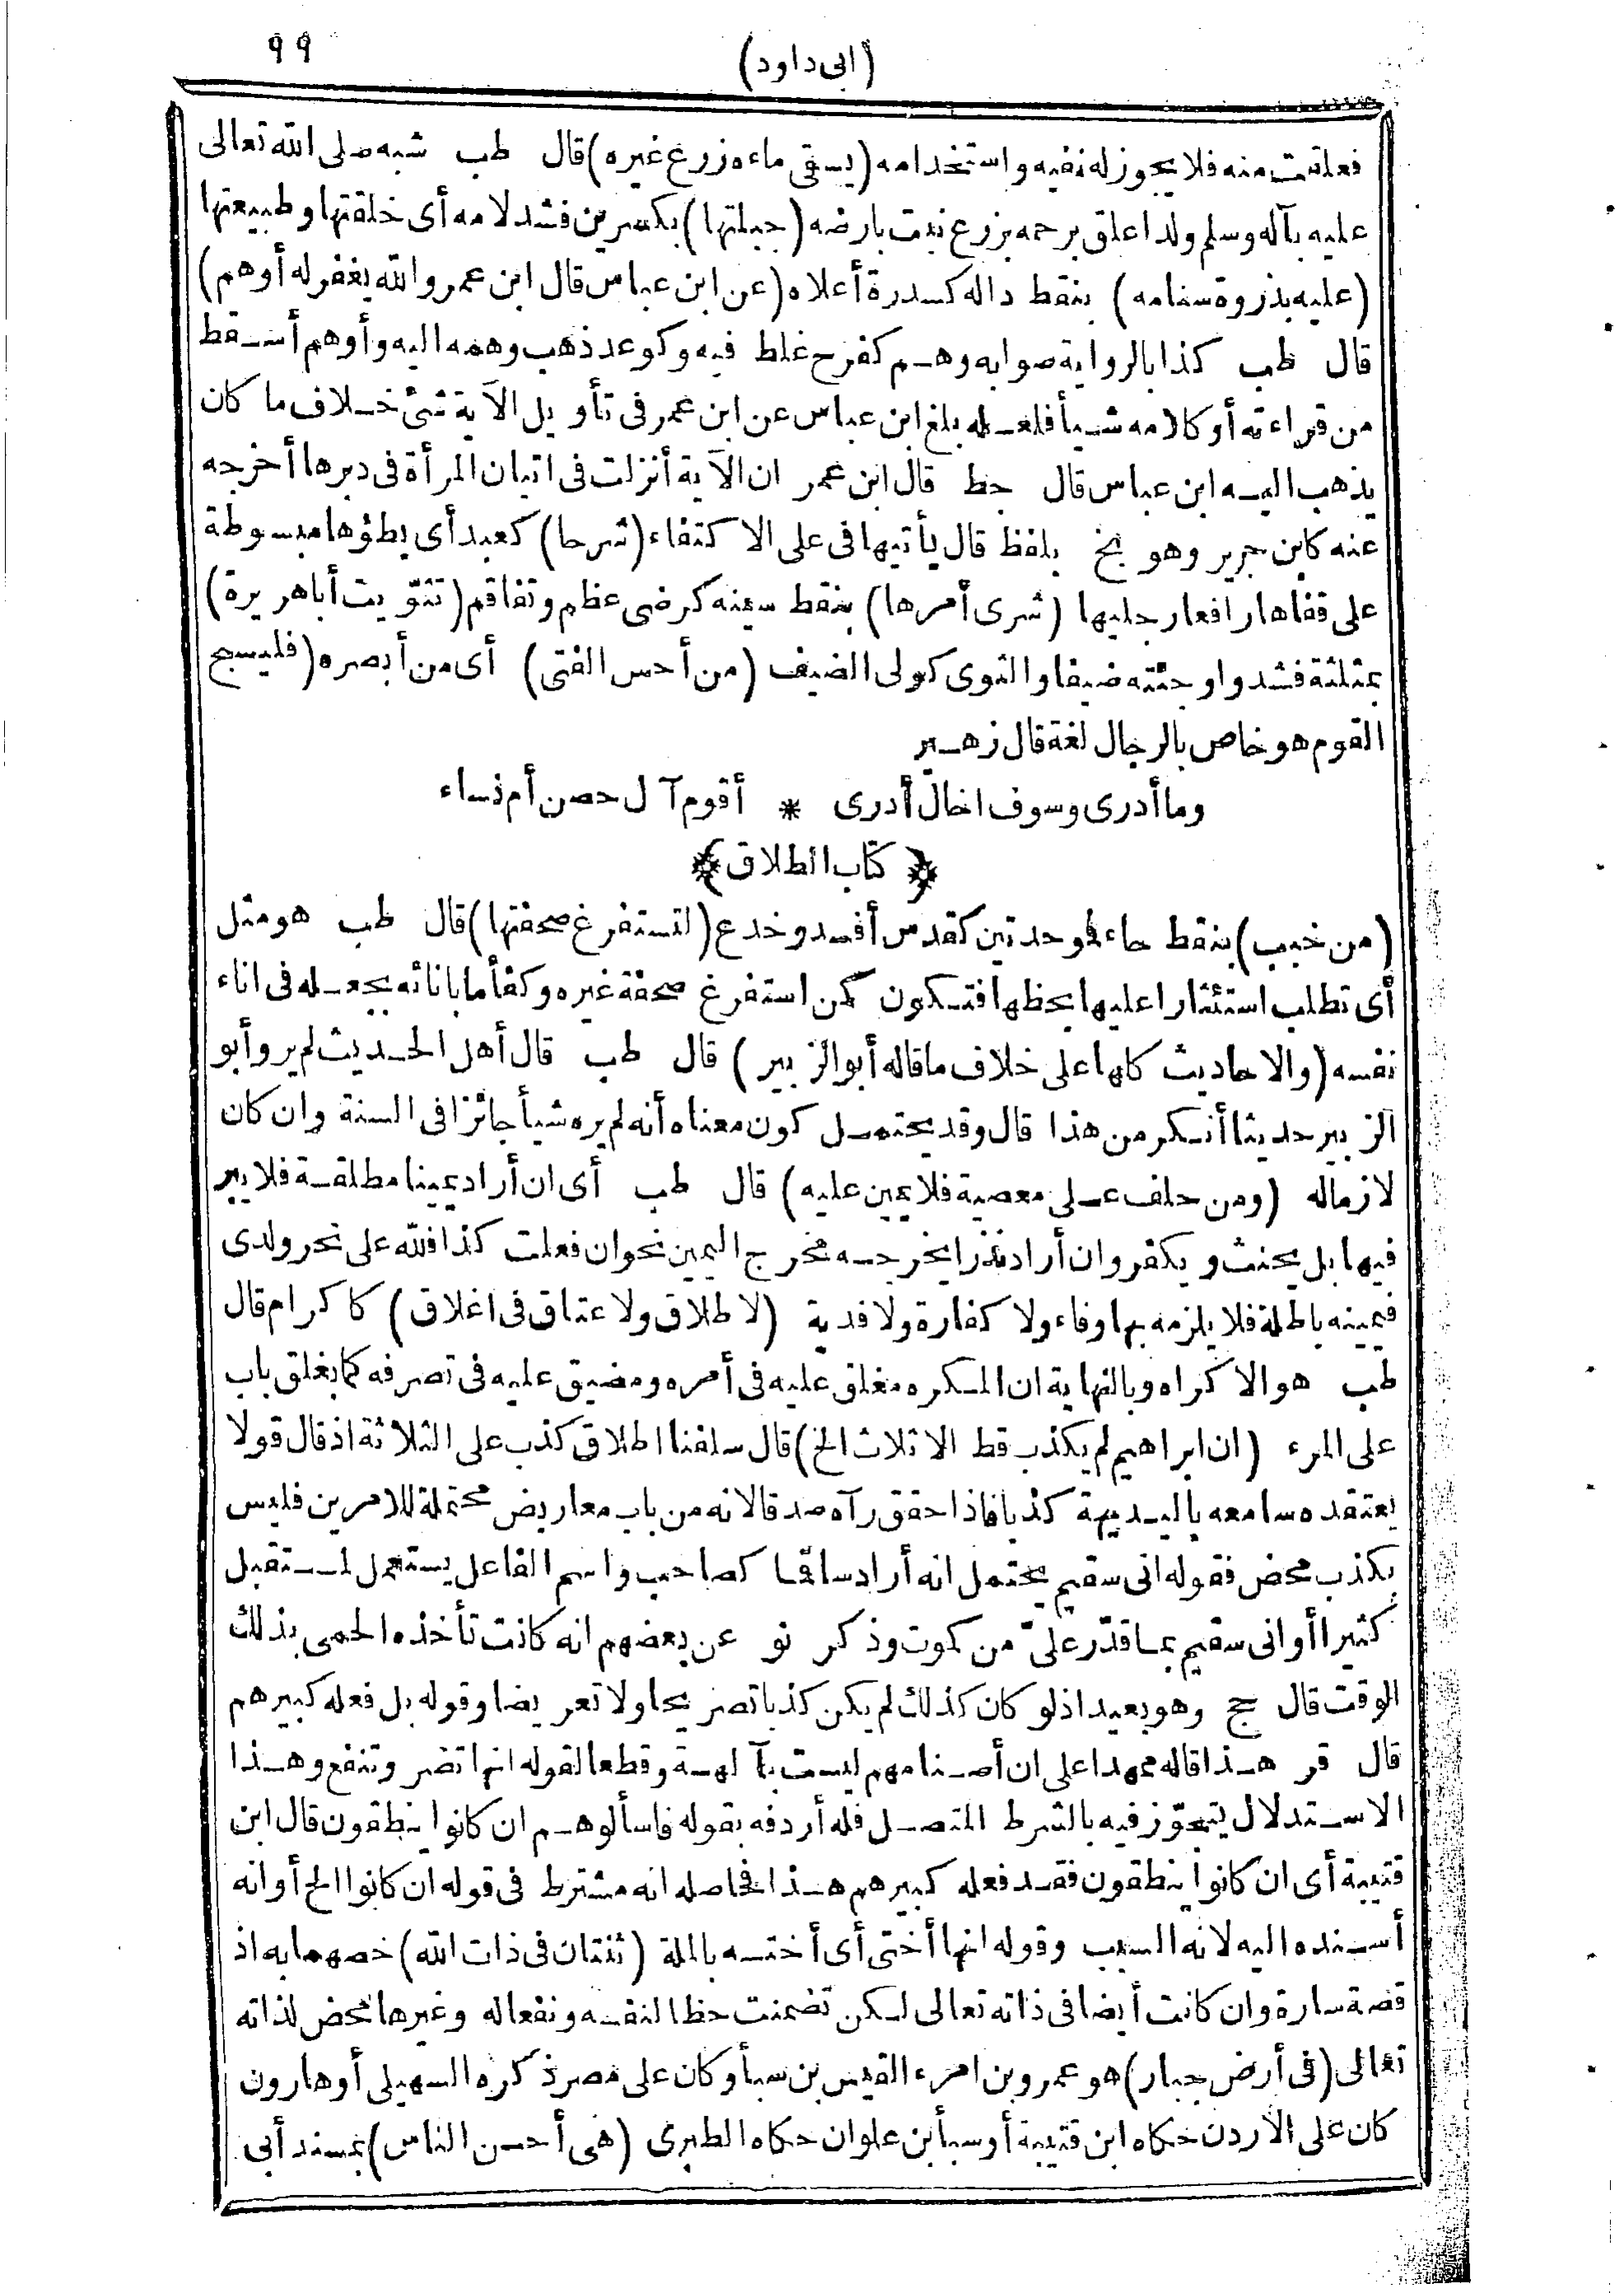 (ابى داود)
٩٩
فعلقت منه فلا يجوز له نفيه واستخدامه (يسقى ماءه زرع غيره) قال طب شبه صلى الله تعالى
عليه بآله وسلم ولدا علق برحمه بزرع نبت بارضه (جبلتها) بكسرين فشد لامه أى خلقتها وطبيعتها
(عليه بذروة سنامه) بنقط داله كسدرة أعلاه (عن ابن عباس قال ابن عمر والله يغفر له أوهم)
قال طب كذا بالرواية صوابه وهم كفرح غلط فيه وكوعد ذهب وهمه اليه وأوهم أسقط
من قراءته أو كلامه شيأ فلعله بلغ ابن عباس عن ابن عمر فى تأويل الآية شئ خلاف ما كان
يذهب اليه ابن عباس قال حط قال ابن عمر ان الآية أنزلت فى اتيان المرأة فى دبرها أخرجه
عنه كابن جرير وهو بخ بلفظ قال يأتيها فى على الاكتفاء (شرحا) كعبد أى يطؤها مبسوطة
على قفاها رافعا رجليها (شرى أمرها) بنقط سينه كرضى عظم وتفاقم (تثوّيت أبا هريرة)
بمثلثة فشد واو جئته ضيفا والثوى كولى الضيف (من أحس الفتى) أى من أبصره (فليسبح
القوم هو خاص بالرجال لغة قال زهير
وما أدرى وسوف اخال أدرى * أقوم آل حصن أم نساء
﴿كتاب الطلاق﴾
(من خبب) بنقط خاء فوحدتين كقدس أفسد وخدع (لتستفرغ صحفتها) قال طب هو مثل
أى تطلب استئثارا عليها بحظها فتكون كمن استفرغ صحفة غيره وكفأ ما بانائه بجعله فى اناء
نفسه (والاحاديث كلها على خلاف ما قاله أبو الزبير) قال طب قال أهل الحديث لم يرو أبو
الزبير حديثا أنكر من هذا قال وقد يحتمل كون معناه أنه لم يره شيأ جائزا فى السنة وان كان
لازما له (ومن حلف على معصية فلا يمين عليه) قال طب أى ان أراد يمينا مطلقة فلا يبر
فيها بل يحنث ويكفر وان أراد نذرا يخرجه مخرج اليمين نحو ان فعلت كذا فلله على نحر ولدى
فيمينه باطلة فلا يلزمه بها وفاء ولا كفارة ولا فدية (لا طلاق ولا عتاق فى اغلاق) كاكرام قال
طب هو الاكراه وبالنهاية ان المكره مغلق عليه فى أمره ومضيق عليه فى تصرفه كما يغلق باب
على المرء (ان ابراهيم لم يكذب قط الا ثلاث الخ) قال سلفنا اطلاق كذب على الثلاثة اذ قال قولا
يعتقده سامعه بالبديهة كذبا فاذا حقق رآه صدقا لانه من باب معاريض محتملة للامرين فليس
بكذب محض فقوله انى سقيم يحتمل انه أراد ساقما كصاحب واسم الفاعل يستعمل لمستقبل
كثيرا أو انى سقيم بما قدّر علىّ من كموت وذكر نو عن بعضهم انه كانت تأخذه الحمى بذلك
الوقت قال حج وهو بعيد اذ لو كان كذلك لم يكن كذبا تصريحا ولا تعريضا وقوله بل فعله كبيرهم
قال قر هذا قاله ممهدا على ان أصنامهم ليست بآلهة وقطعا لقوله انها تضر وتنفع وهذا
الاستدلال يتجوّز فيه بالشرط المتصل فله أردفه بقوله فاسألوهم ان كانوا ينطقون قال ابن
قتيبة أى ان كانوا ينطقون فقد فعله كبيرهم هذا فحاصله انه مشترط فى قوله ان كانوا الخ أو انه
أسنده اليه لانه السبب وقوله انها أختى أى أخته بالملة (ثنتان فى ذات الله) خصهما به اذ
قصة سارة وان كانت أيضا فى ذاته تعالى لكن تضمنت حظا لنفسه ونفعا له وغيرها محض لذاته
تعالى (فى أرض جبار) هو عمرو بن امرء القيس بن سبأ وكان على مصر ذكره السهيلى أو هارون
كان على الأردن حكاه ابن قتيبة أو سبأ بن علوان حكاه الطبرى (هى أحسن الناس) بمسند أبى